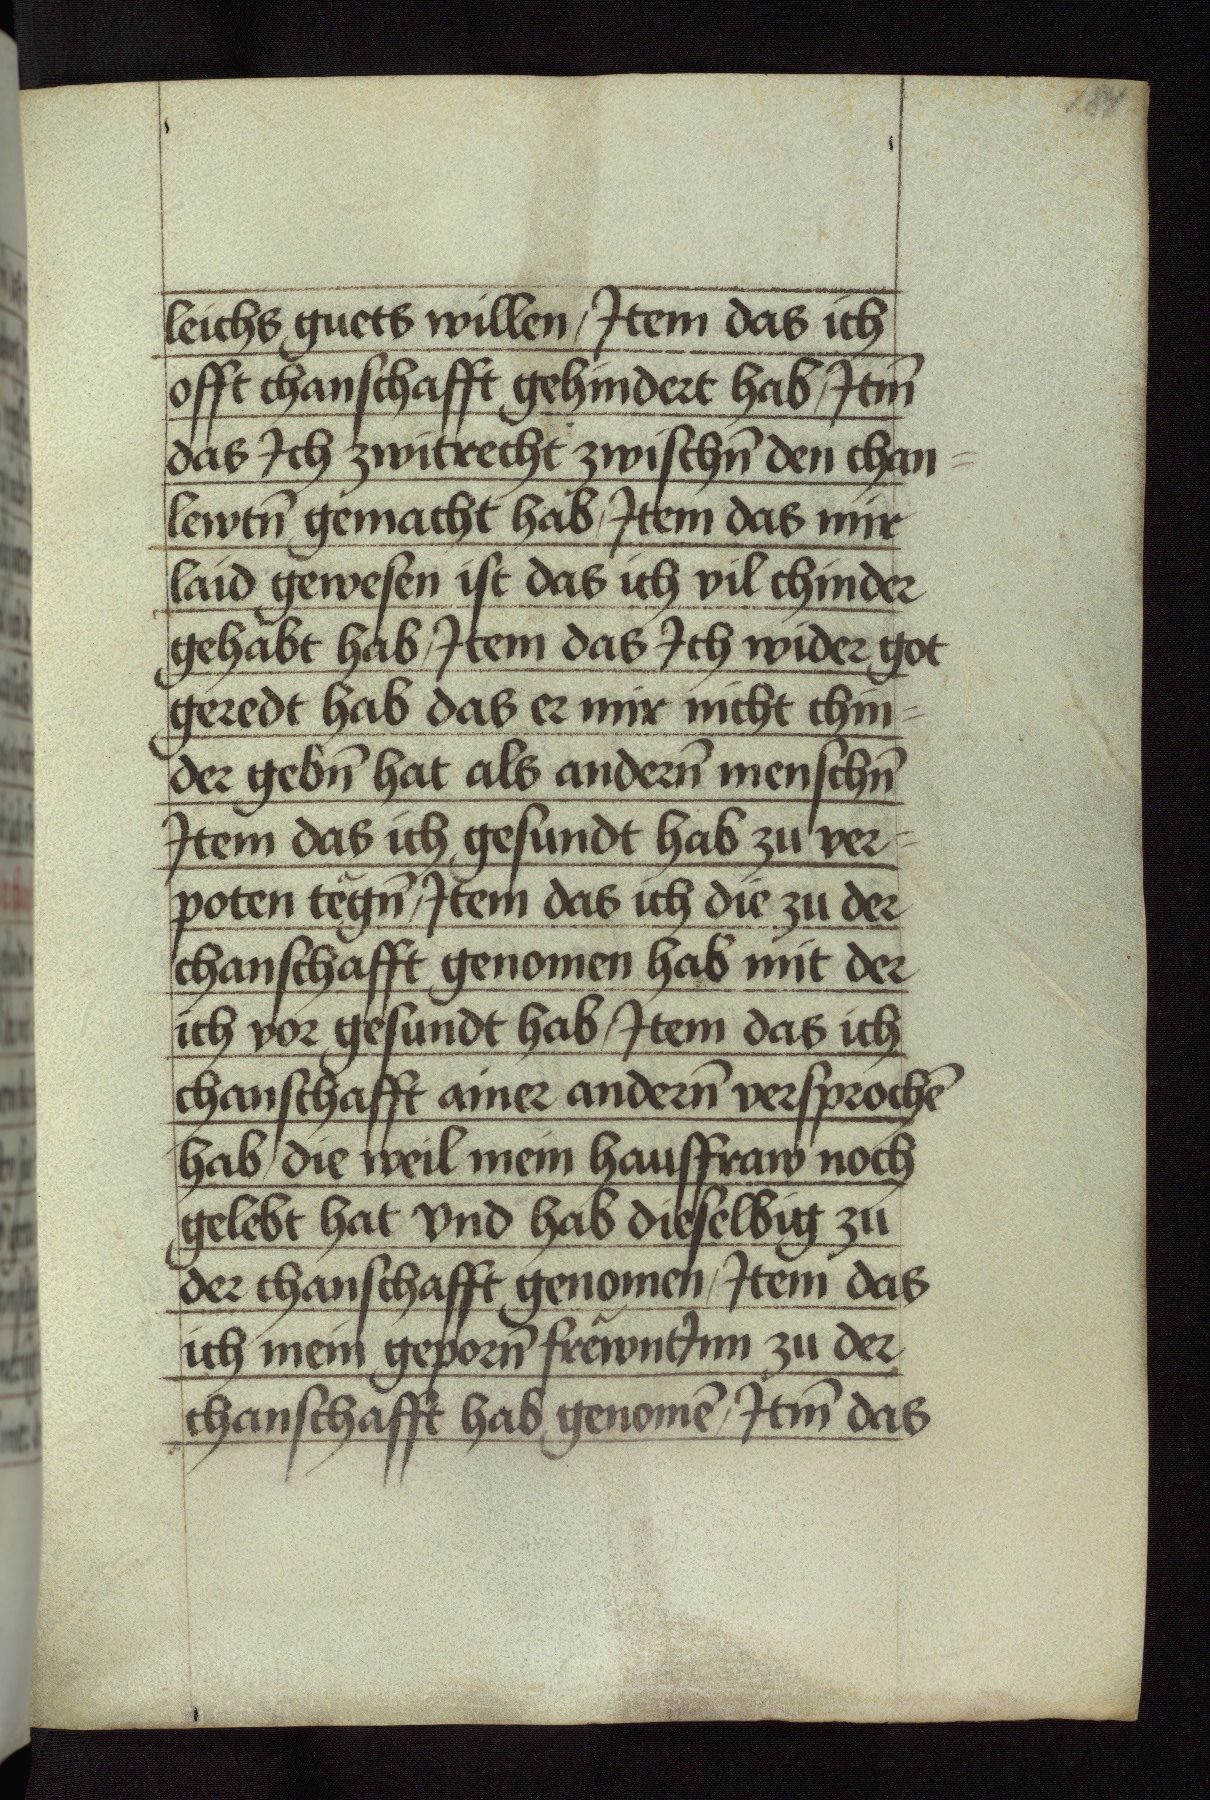 184
leichs guets willen / Item das ich
offt chanschafft gehindert hab / Itm̄
das Ich zwitrecht zwischn̄ den chan=
lewtn̄ gemacht hab / Item das mir
laid gewesen ist das ich vil chinder
gehabt hab / Item das Ich wider got
geredt hab das er mir nicht chin=
der gebn̄ hat als andern̄ menschn̄
Item das ich gesundt hab zu ver=
poten tëgn̄ / Item das ich die zu der
chanschafft genomen hab mit der
ich vor gesundt hab / Item das ich
chanschafft ainer andern̄ versprochē
hab / die weil mein hausfraw noch
gelebt hat vnd hab dieselbig zu
der chanschafft genomen / Item das
ich mein geporn̄ frëwntInn zu der
chanschafft hab genomē / Itm̄ das